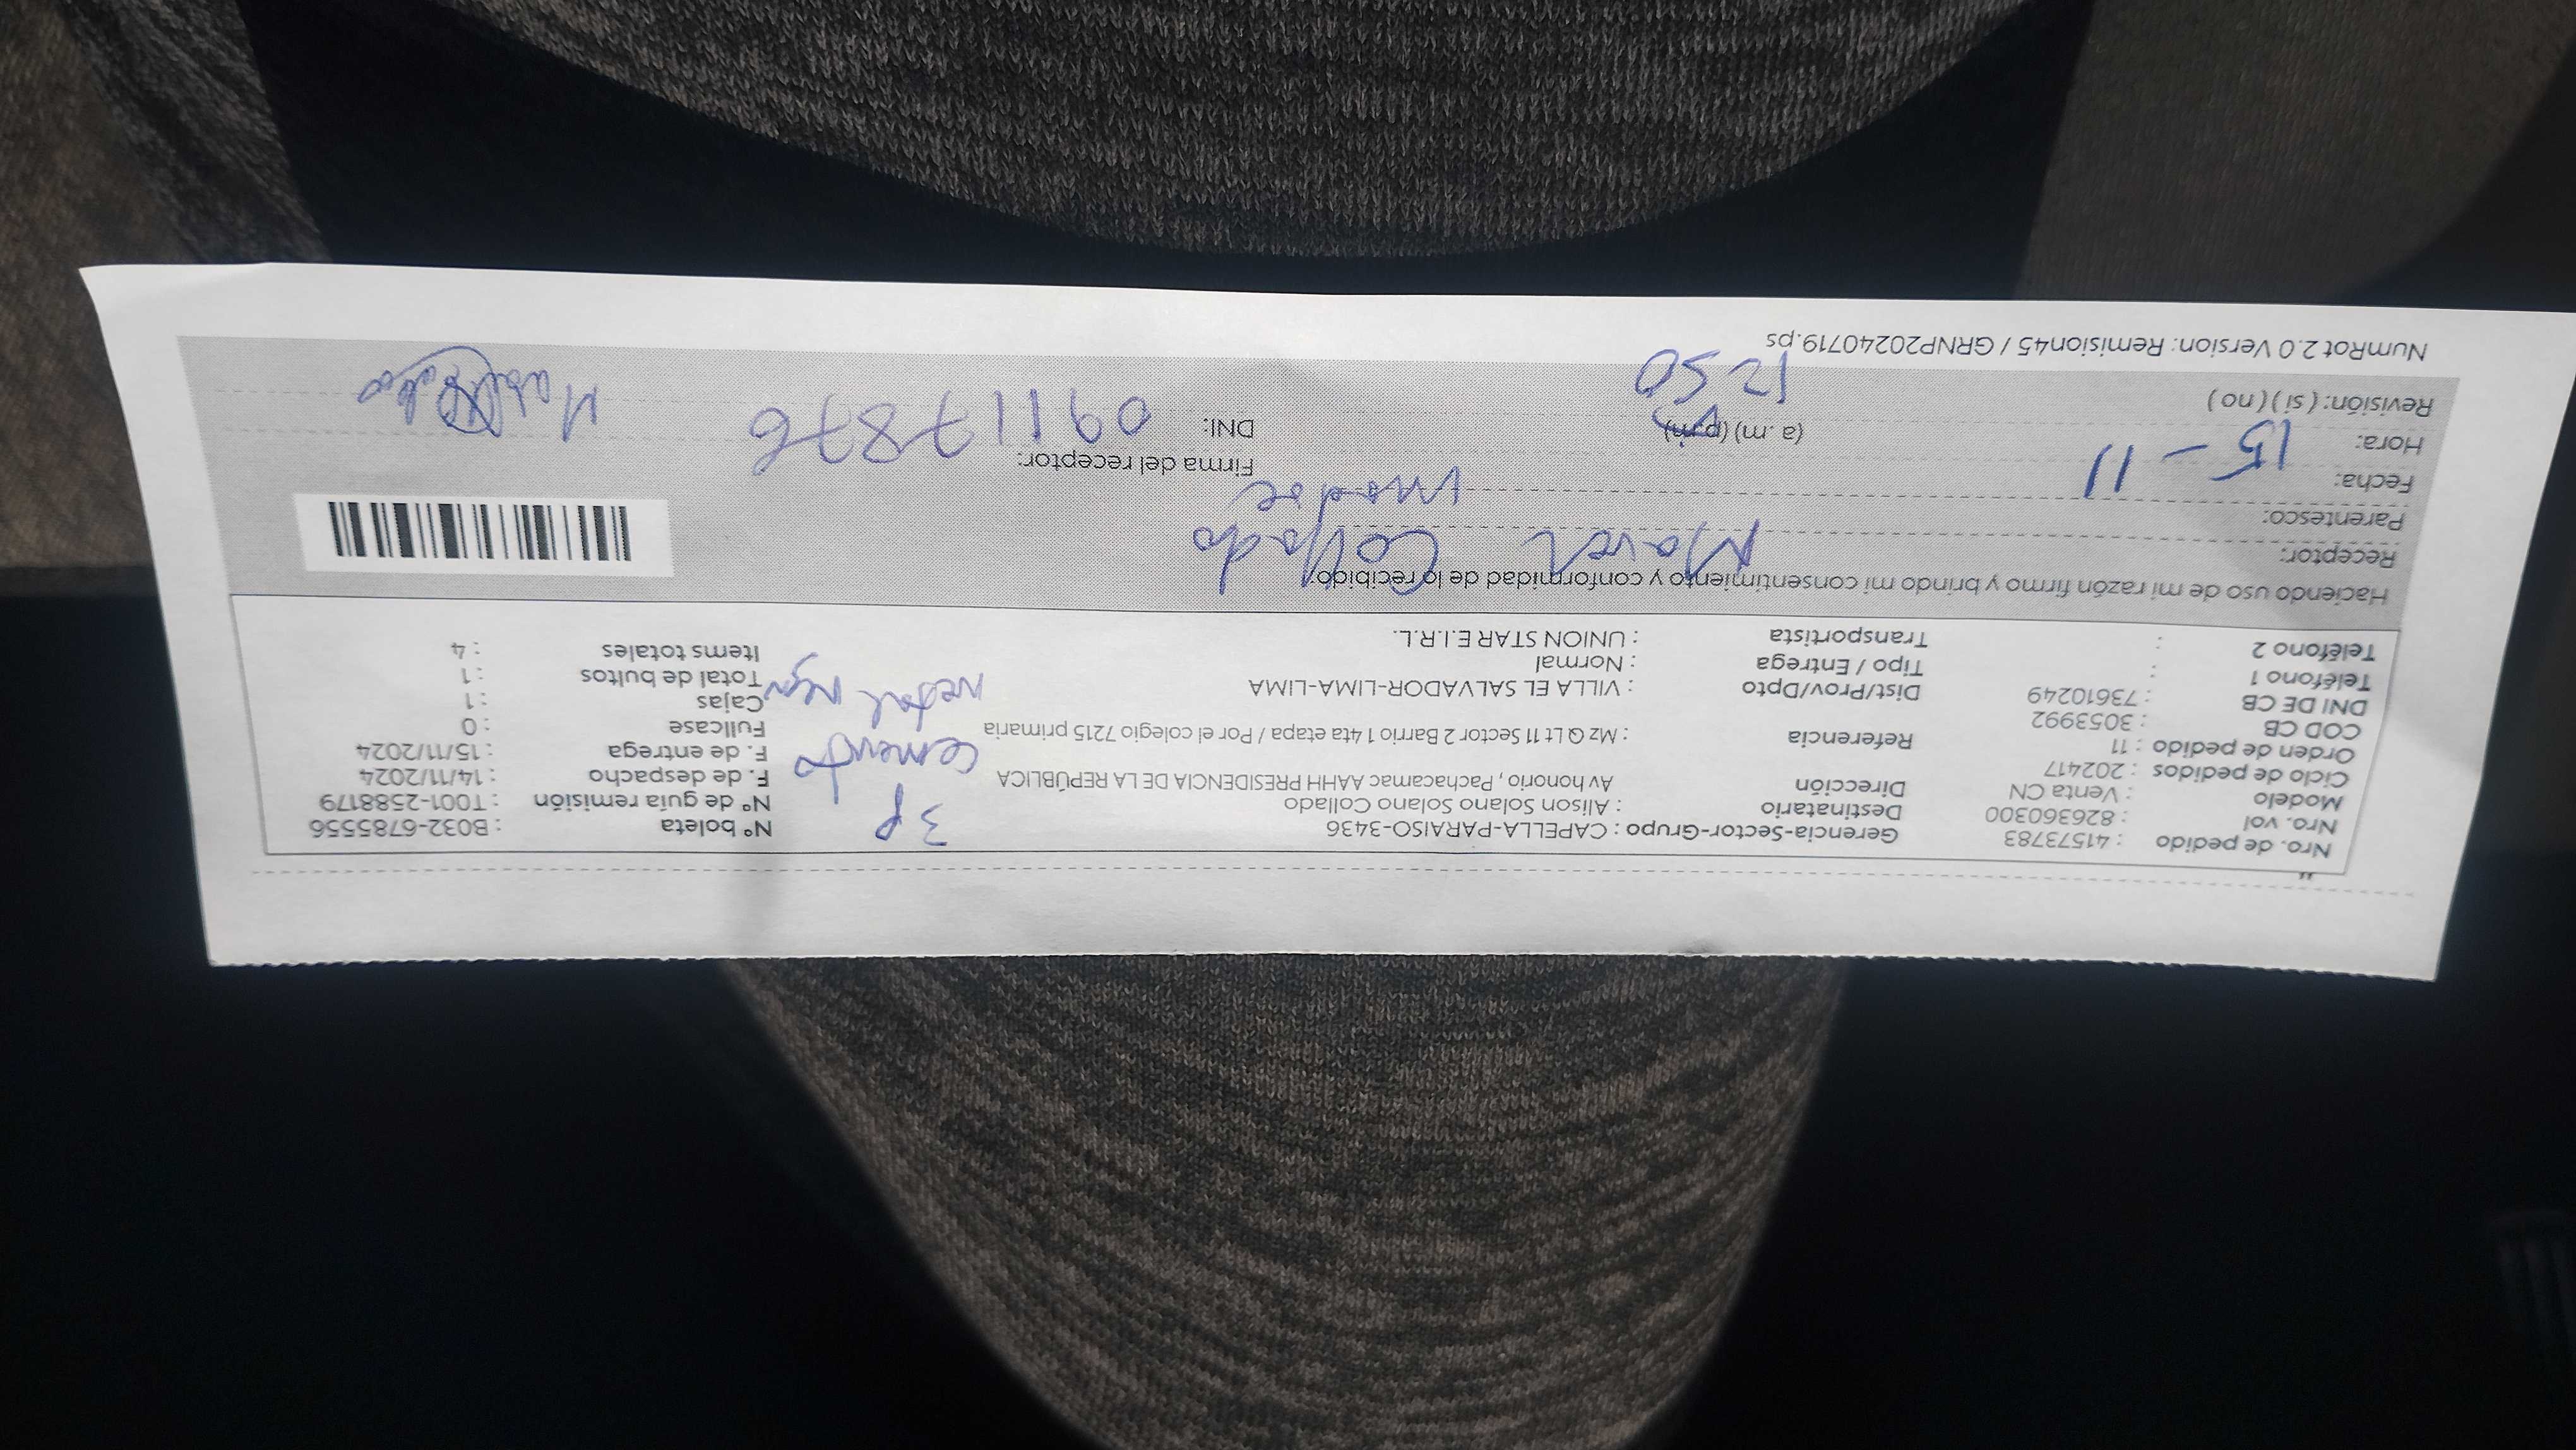 Nro. de pedido : 41573783 Gerencia-Sector-Grupo : CAPELLA-PARAISO-3436 3p Nº boleta : B032-6785556
Nro. vol : 826360300 Destinatario : Alison Solano Solano Collado Nº de guía remisión : T001-2588179
Modelo : Venta CN Dirección Av honorio , Pachacamac AAHH PRESIDENCIA DE LA REPÚBLICA F. de despacho : 14/11/2024
Ciclo de pedidos : 202417 : Mz Q Lt 11 Sector 2 Barrio 1 4ta etapa / Por el colegio 7215 primaria cemento F. de entrega : 15/11/2024
Orden de pedido : 11 Referencia Fullcase : 0
COD CB : 3053992 Dist/Prov/Dpto : VILLA EL SALVADOR-LIMA-LIMA Cajas : 1
DNI DE CB : 73610249 Tipo / Entrega : Normal metal negr Total de bultos : 1
Teléfono 1 : Transportista : UNION STAR E.I.R.L. Items totales : 4
Teléfono 2 :
Haciendo uso de mi razón firmo y brindo mi consentimiento y conformidad de lo recibido.
Receptor: Mavel Collado
Parentesco: madre
Fecha: 15-11 Firma del receptor:
Hora: (a. m) (p.m) DNI: 09117876
12 50
Revisión: ( si ) ( no )
NumRot 2.0 Version: Remision45 / GRNP20240719.ps